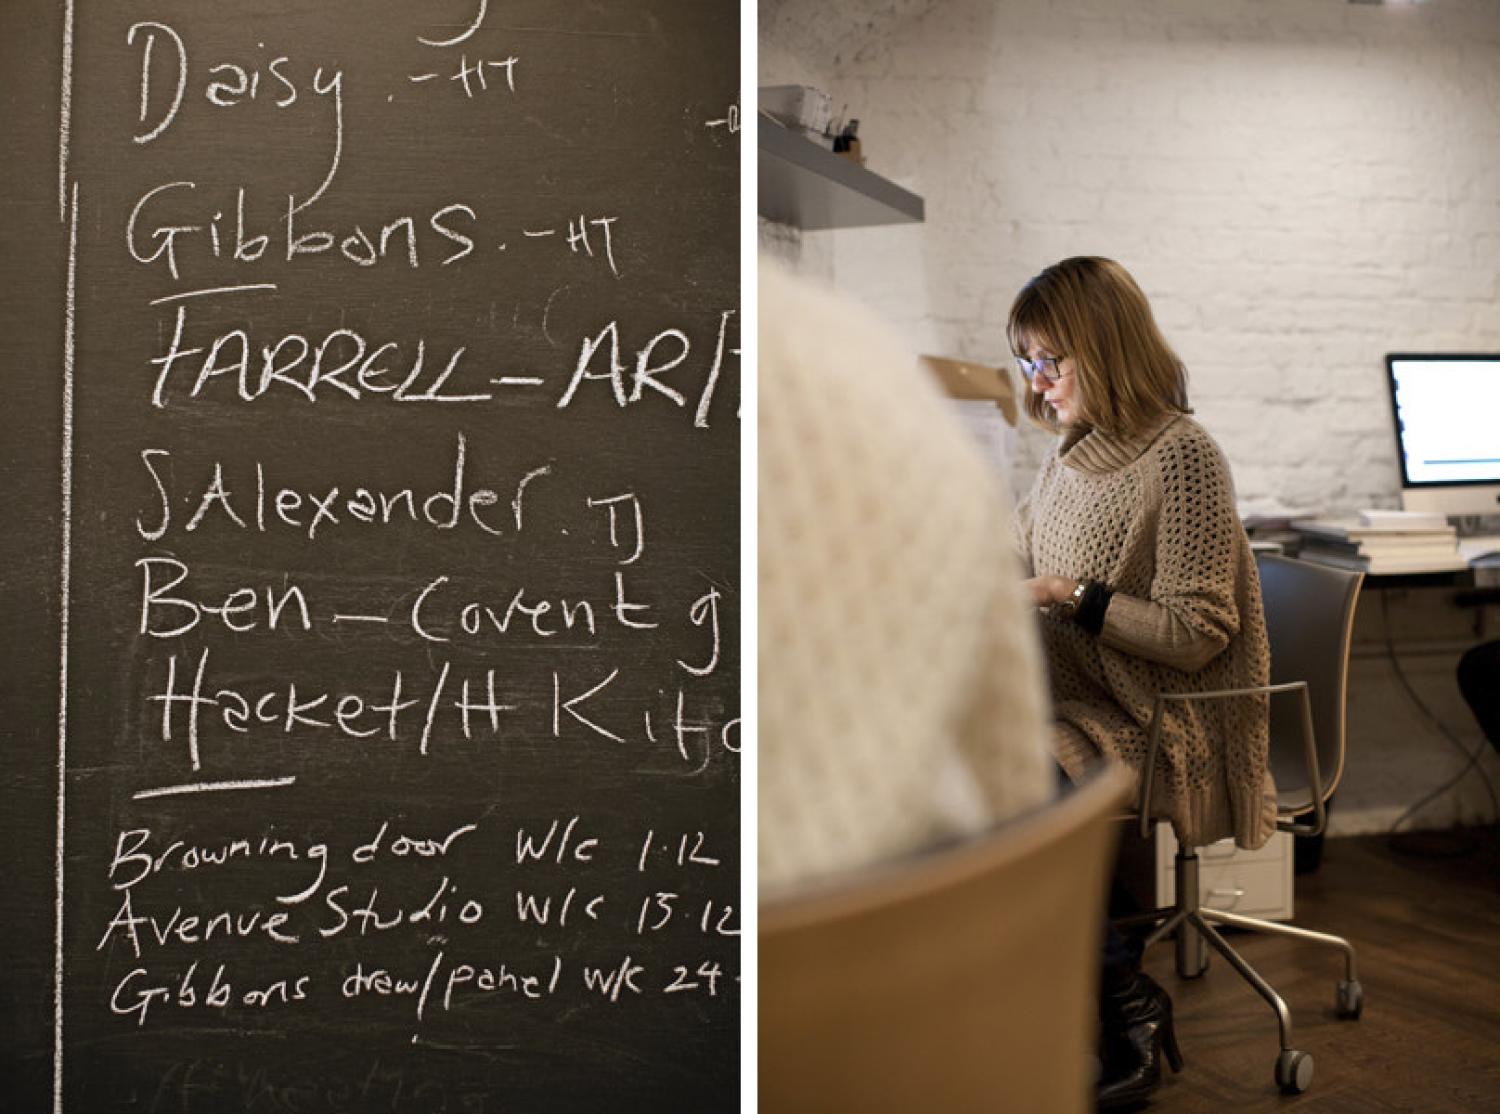 Daisy .-HT
Gibbons.-HT
FARRELL-AR/
SAlexander. TJ
Ben-Covent g
Hacket/H Kitc
Browning door W/c 1·12
Avenue Studio W/c 15·12
Gibbons draw/panel W/c 24-